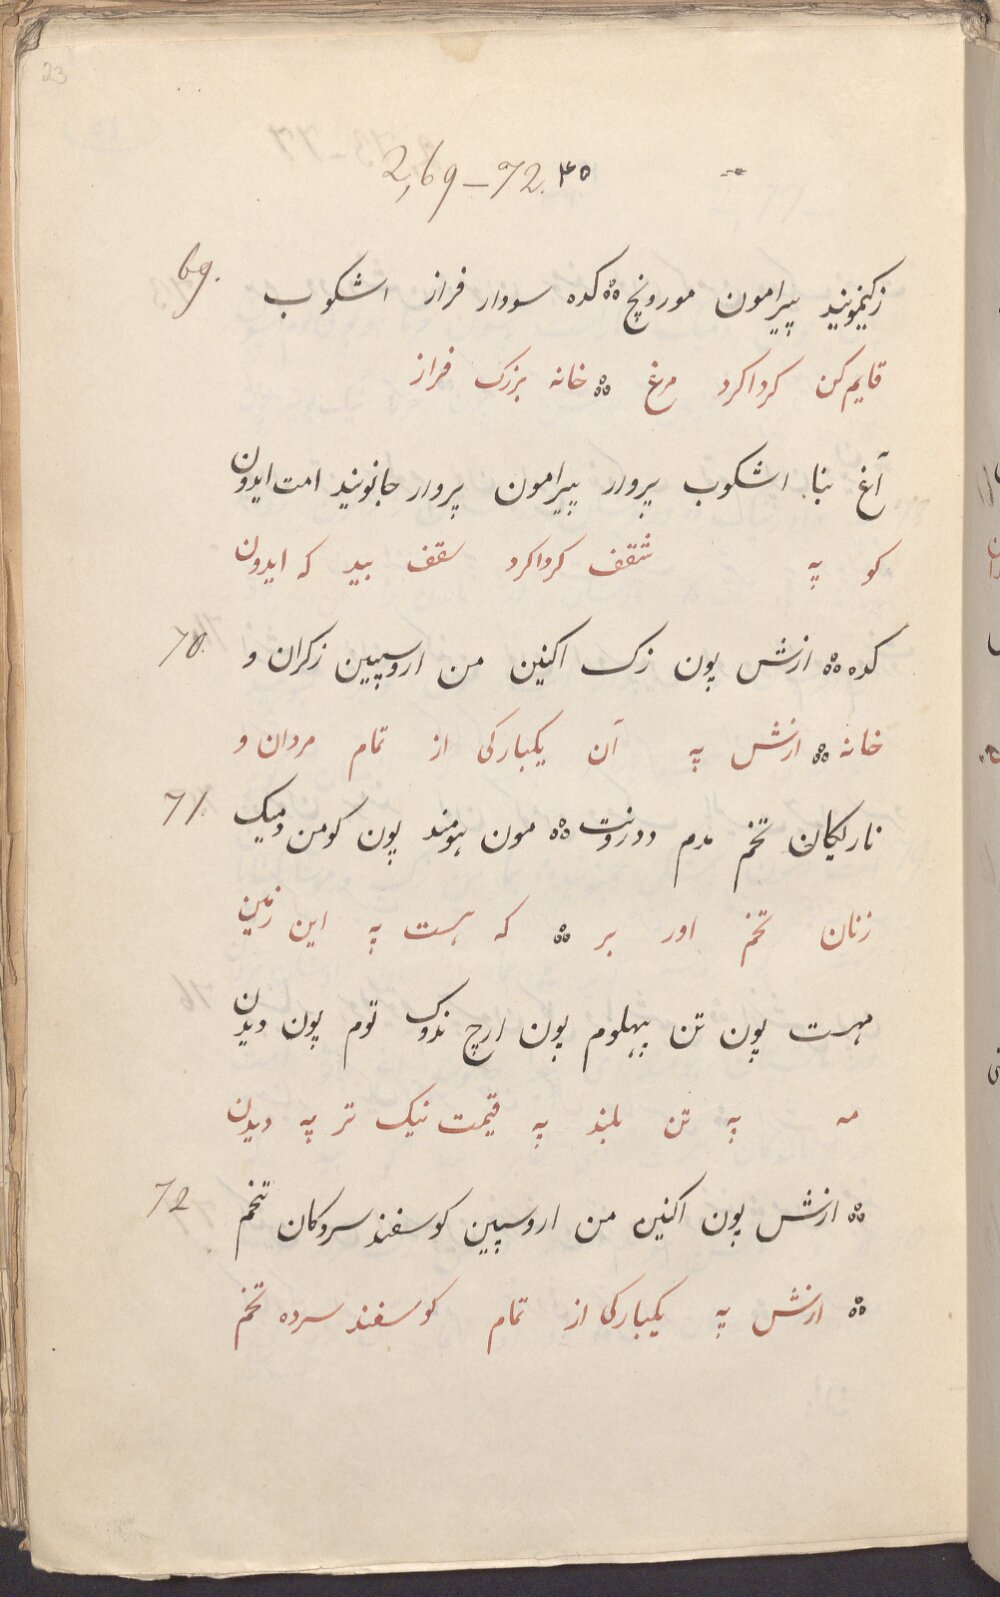 23
2,69–72. ۳۵
69.
زکیمونید پیرامون مورونچ ܀ کده سووار فراز اشکوب
قایم کن کرداکرد مرغ ܀ خانه بزرک فراز
آغ بنا اشکوب پروار پیرامون پروار جانونید امت ایدون
کو په شقف کرداکرد سقف بید که ایدون
70.
کده ܀ ازش پون زک اکنین من اروسپین زکران و
خانه ܀ ازش په آن یکبارکی از تمام مردان و
71.
ناریکان تخم مدم ܀ مون هومند پون کومن دمیک
زنان تخم اور بر ܀ که هست په این زمین
مهست پون تن پهلوم پون ارچ ندوک توم پون دیدن
مه په تن بلند په قیمت نیک تر په دیدن
72
܀ ازش پون اکنین من اروسپین کوسفند سردکان تخم
܀ ازش په یکبارکی از تمام کوسفند سرده تخم